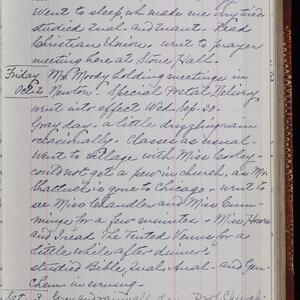 Went to sleep, wh. made me
studied Qual. and Quant. Lead
Christian Union. went to prayer
meeting here at Stone Hall.
Friday Mr. Moody holding meetings in
Oct. 2 Newton. Special Postal Delivery
went into effect Wed. Sep. 30.
Gray day. a little drizzling rain
occasionally. Classes as usual.
Went to village with Miss Cooley.
could not get a pew in church, as Mr.
Shattuck is gone to Chicago. went to
see Miss Chandler and Miss Cum-
mings for a few minutes. Miss Howe
and I read The Tinted Venus for a
little while after dinner.
studied Bible, Qual. Anal. and
Chem. in evening.
Sat. 3